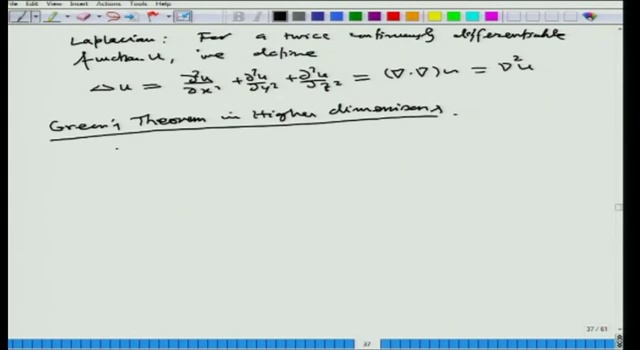 File View Insert Actions Tools Help
Laplacian: For a twice continuously differentiable
function u, we define
Δu = ∂²u/∂x² + ∂²u/∂y² + ∂²u/∂z² = (∇·∇)u = ∇²u
Green's Theorem in Higher dimensions.
37 / 61
37